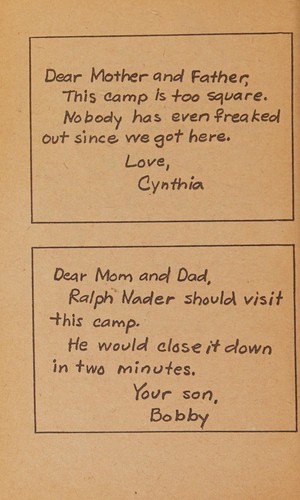 Dear Mother and Father,
This camp is too square.
Nobody has even freaked
out since we got here.
Love,
Cynthia
Dear Mom and Dad,
Ralph Nader should visit
this camp.
He would close it down
in two minutes.
Your son,
Bobby